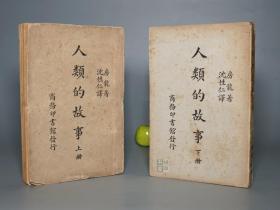 房龍著
沈性仁譯
人類的故事 上冊
商務印書館發行
房龍著
沈性仁譯
人類的故事 下冊
商務印書館發行